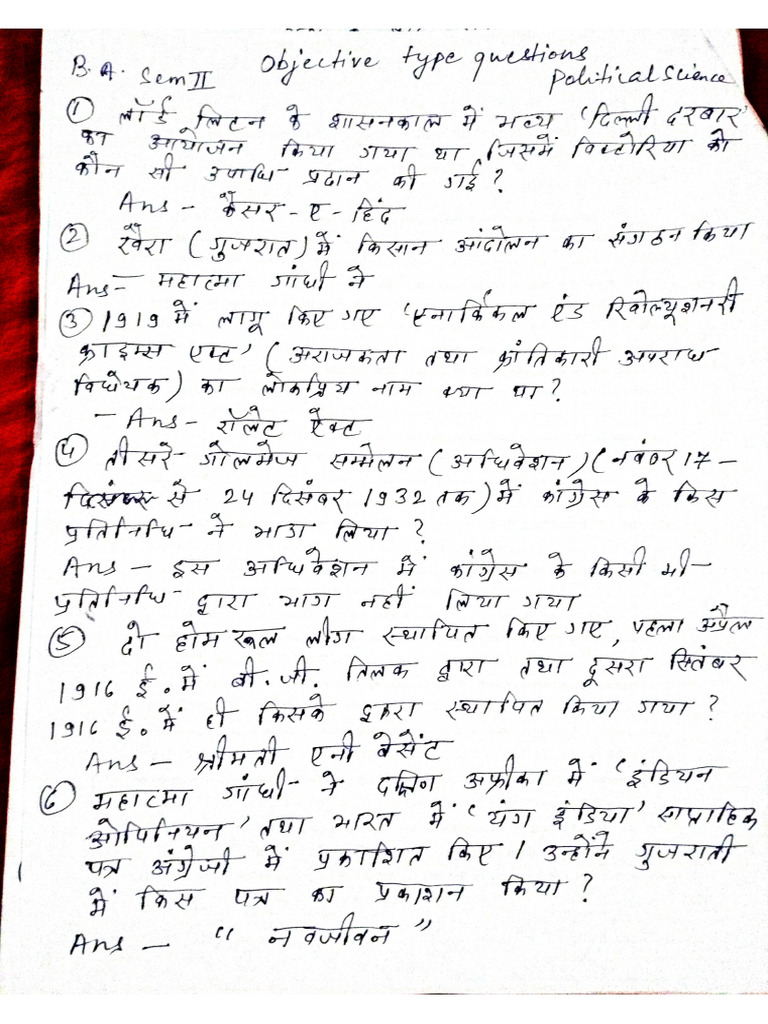 B.A. Sem II Objective type questions
Political Science
① लॉर्ड लिटन के शासनकाल में भव्य 'दिल्ली दरबार'
का आयोजन किया गया था जिसमें विक्टोरिया को
कौन सी उपाधि प्रदान की गई?
Ans - कैसर-ए-हिंद
② खैरा (गुजरात) में किसान आंदोलन का संगठन किया
Ans- महात्मा गांधी ने
③ 1919 में लागू किए गए 'एनार्किकल एंड रिवोल्यूशनरी
क्राइम्स एक्ट' (अराजकता तथा क्रांतिकारी अपराध
विधेयक) का लोकप्रिय नाम क्या था?
- Ans- रॉलेट ऐक्ट
④ तीसरे गोलमेज सम्मेलन (अधिवेशन) (नवंबर 17-
से 24 दिसंबर 1932 तक) में कांग्रेस के किस
प्रतिनिधि ने भाग लिया?
Ans - इस अधिवेशन में कांग्रेस के किसी भी
प्रतिनिधि द्वारा भाग नहीं लिया गया
⑤ दो होमरूल लीग स्थापित किए गए, पहला अप्रैल
1916 ई. में बी.जी. तिलक द्वारा तथा दूसरा सितंबर
1916 ई. में ही किसके द्वारा स्थापित किया गया?
Ans - श्रीमती एनी बेसेंट
⑥ महात्मा गांधी ने दक्षिण अफ्रीका में 'इंडियन
ओपिनियन' तथा भारत में 'यंग इंडिया' साप्ताहिक
पत्र अंग्रेजी में प्रकाशित किए। उन्होंने गुजराती
में किस पत्र का प्रकाशन किया?
Ans - "नवजीवन"